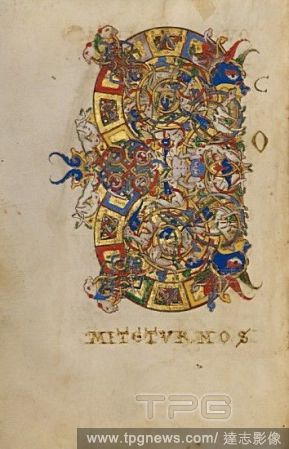 C
O
MITETVR NOS
TPG
www.tpgnews.com/ 達志影像